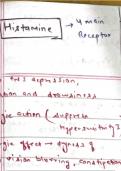 Histamine → 4 main
Receptor
CNS depression,
tion and drowsiness
gic action (suppress
hypersensitivity)
gic effect → dyness of
vision blurring, constipation